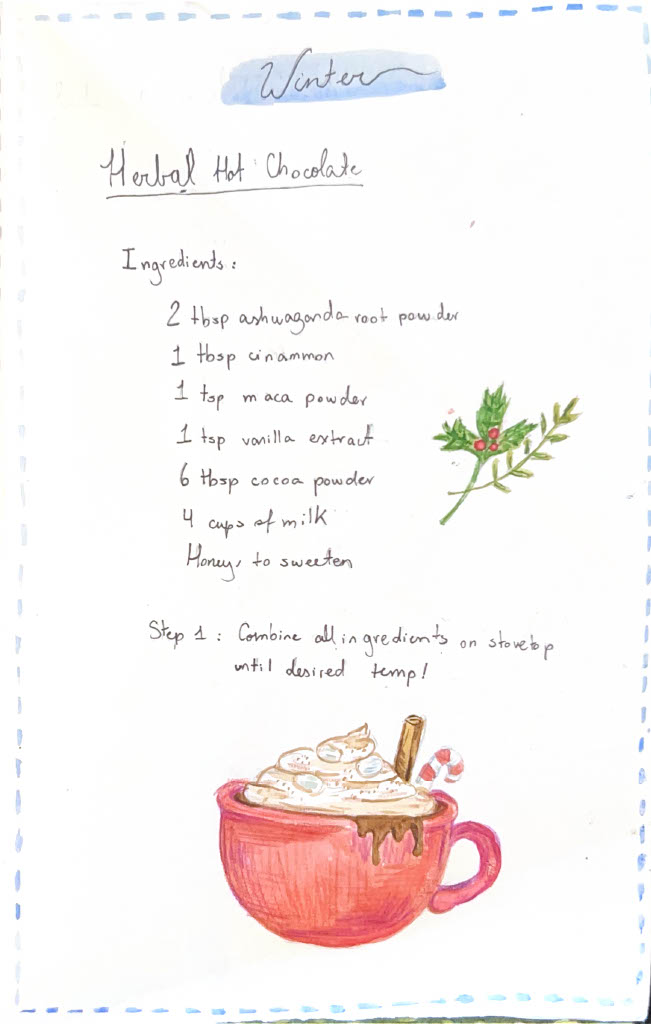 Winter
Herbal Hot Chocolate
Ingredients:
2 tbsp ashwaganda root powder
1 tbsp cinammon
1 tsp maca powder
1 tsp vanilla extract
6 tbsp cocoa powder
4 cups of milk
Honey, to sweeten
Step 1: Combine all ingredients on stovetop
until desired temp!